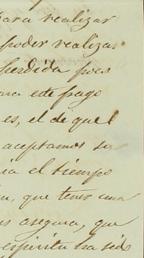 para realizar
poder realizar
perdida pues
para este pago
es, el de que l
aceptamos su
ia el tiempo
que tener una
s asegura, que
espiritu ha sido